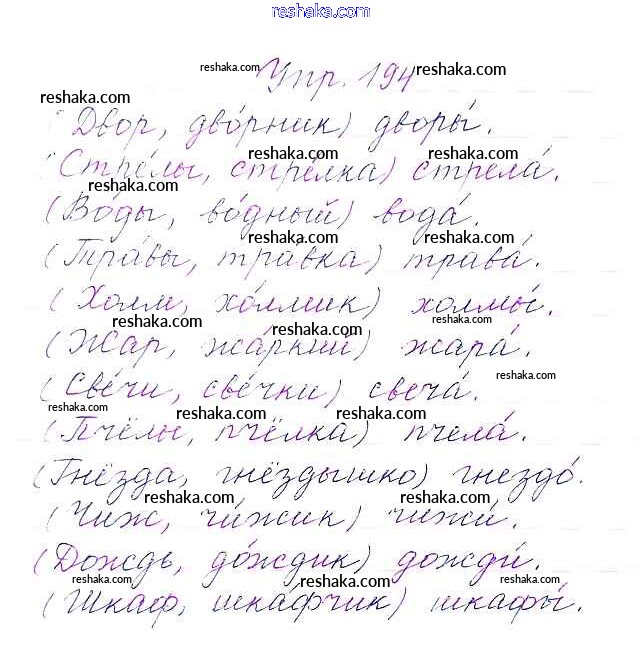 reshaka.com
reshaka.com Упр. 194 reshaka.com
reshaka.com
(Двор, дво́рник) дворы́.
reshaka.com reshaka.com
(Стре́лы, стре́лка) стрела́.
reshaka.com
(Во́ды, во́дный) вода́.
reshaka.com reshaka.com
(Тра́вы, тра́вка) трава́.
(Холм, хо́лмик) холмы́.
reshaka.com reshaka.com reshaka.com
(Жар, жа́ркий) жара́.
reshaka.com
(Све́чи, све́чки) свеча́.
reshaka.com reshaka.com reshaka.com
(Пчёлы, пчёлка) пчела́.
(Гнёзда, гнёздышко) гнездо́.
reshaka.com reshaka.com
(Чиж, чи́жик) чижи́.
reshaka.com reshaka.com
(Дождь, до́ждик) дожди́.
reshaka.com reshaka.com reshaka.com
(Шкаф, шка́фчик) шкафы́.